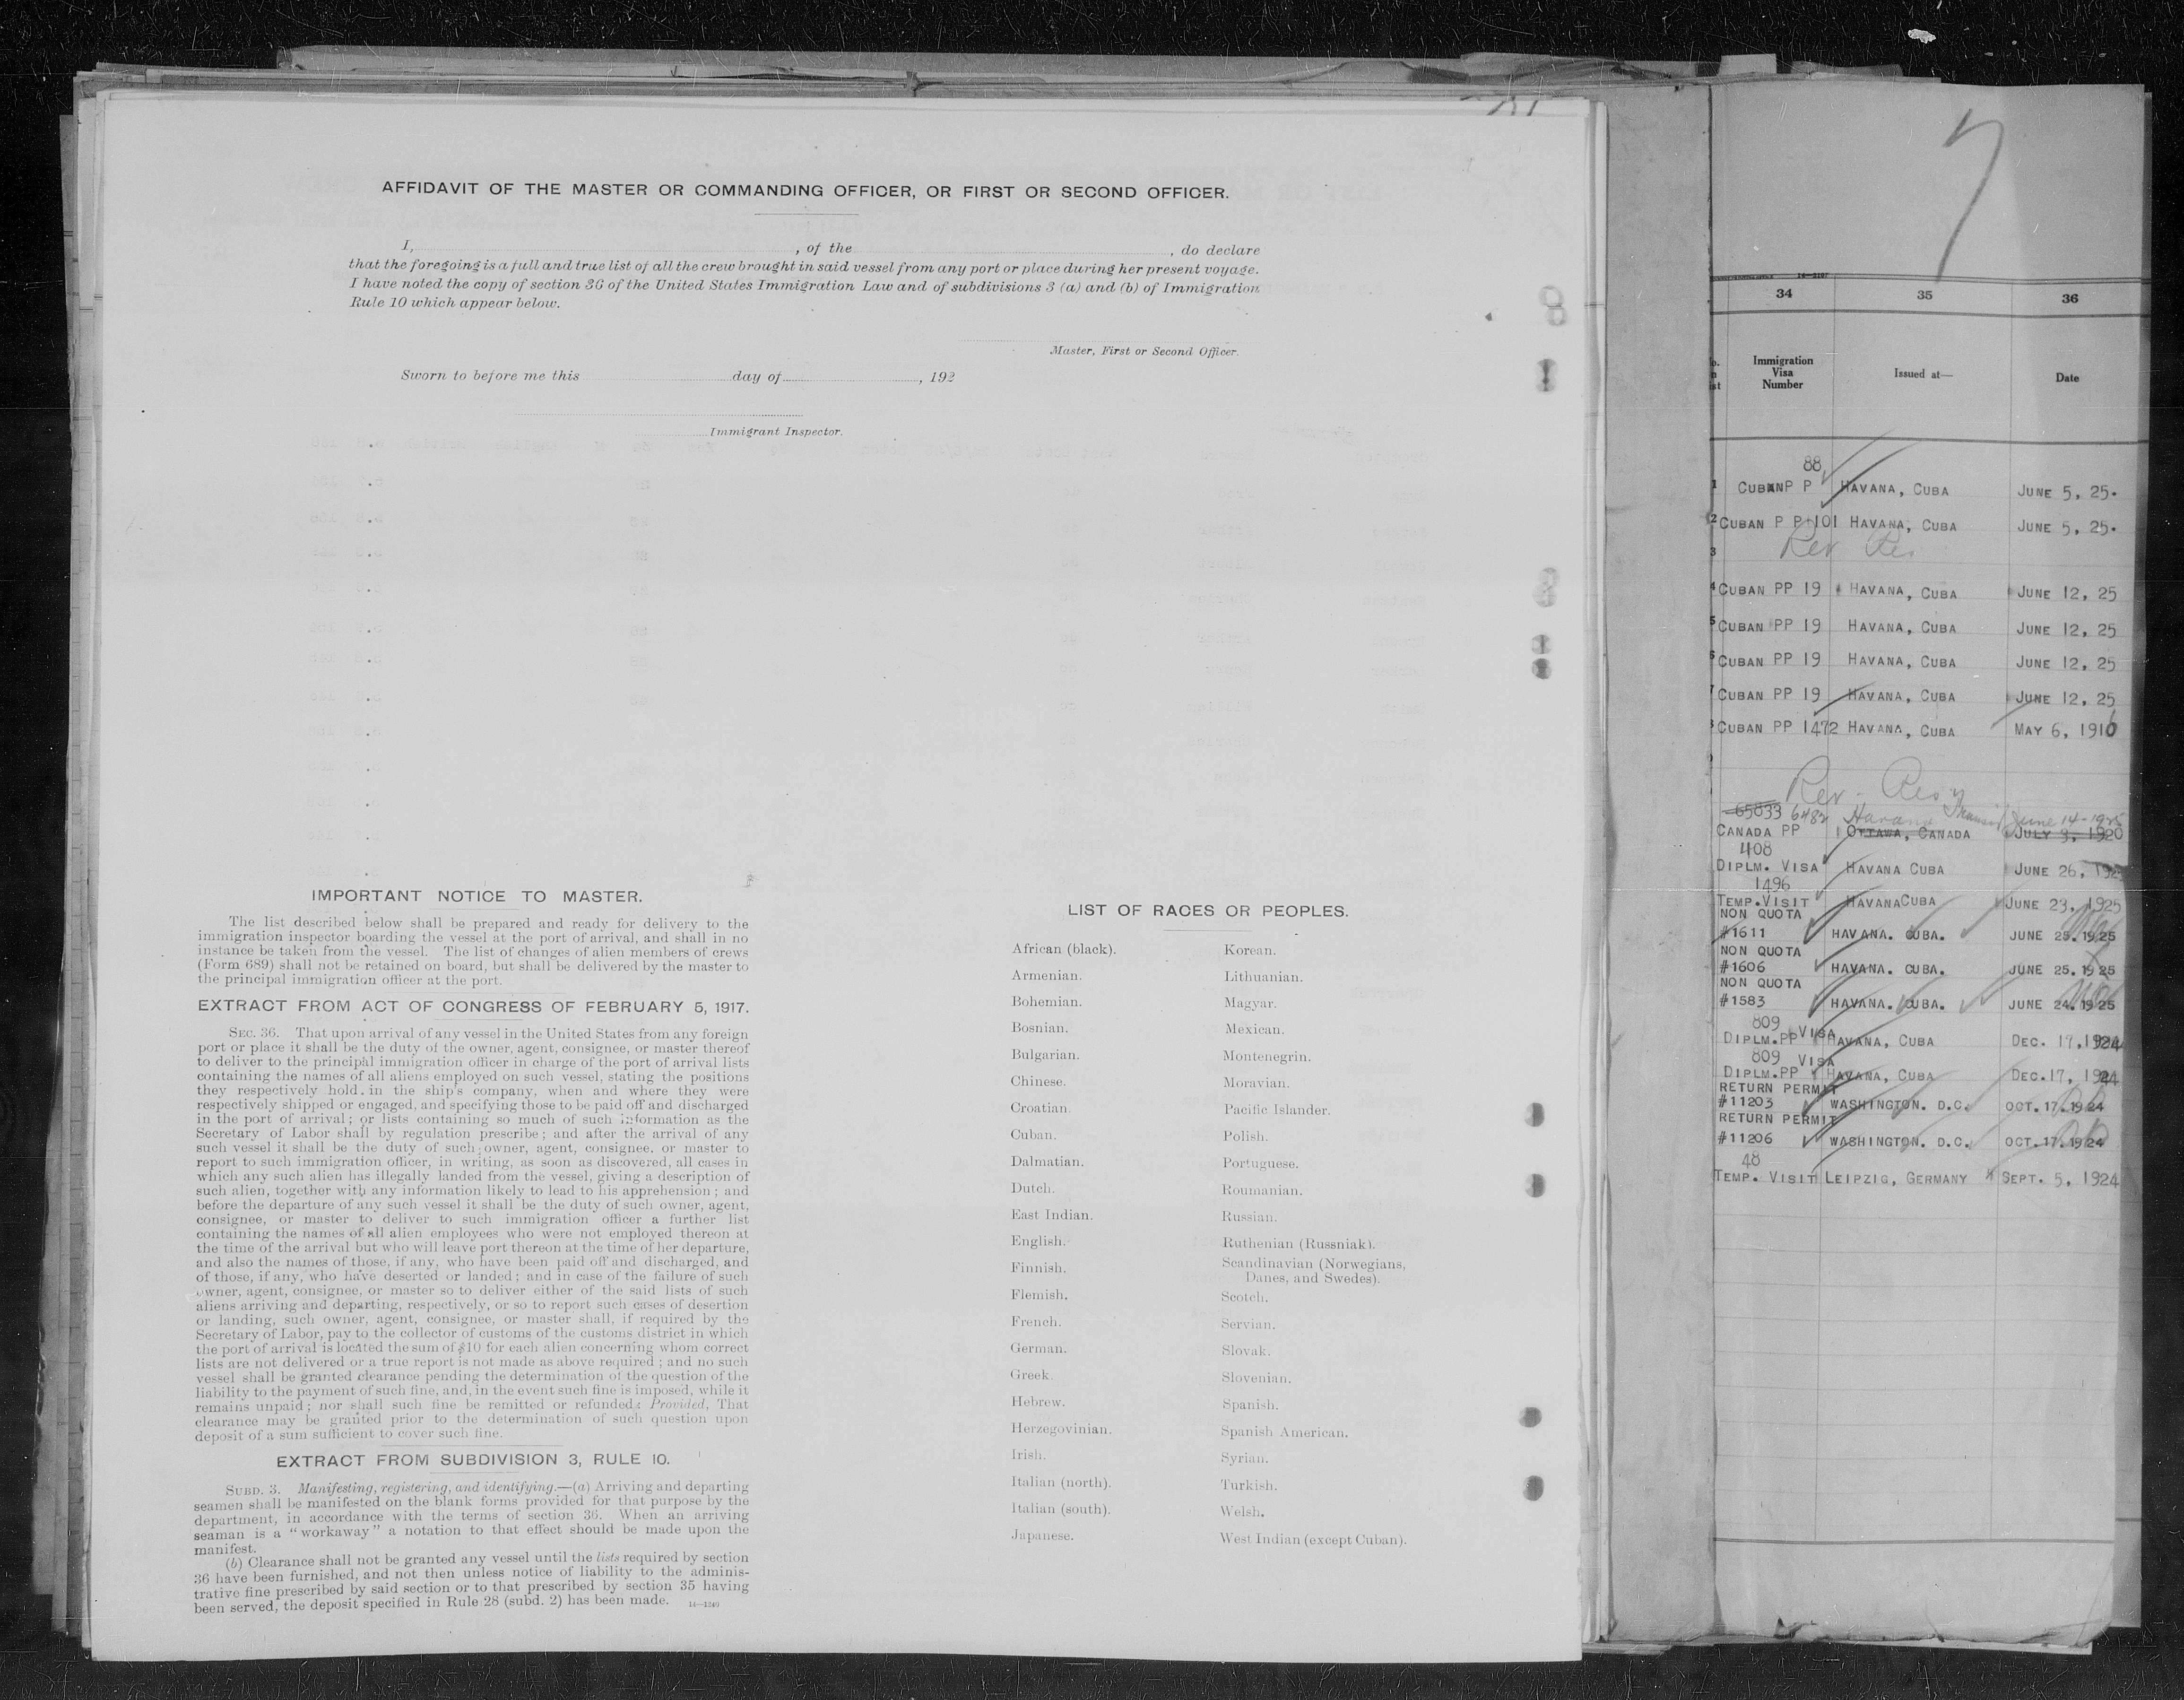 AFFIDAVIT OF THE MASTER OR COMMANDING OFFICER, OR FIRST OR SECOND OFFICER.
I, , of the , do declare
that the foregoing is a full and true list of all the crew brought in said vessel from any port or place during her present voyage.
I have noted the copy of section 36 of the United States Immigration Law and of subdivisions 3 (a) and (b) of Immigration
Rule 10 which appear below.
Master, First or Second Officer.
Sworn to before me this day of , 192
Immigrant Inspector.
IMPORTANT NOTICE TO MASTER.
The list described below shall be prepared and ready for delivery to the
immigration inspector boarding the vessel at the port of arrival, and shall in no
instance be taken from the vessel. The list of changes of alien members of crews
(Form 689) shall not be retained on board, but shall be delivered by the master to
the principal immigration officer at the port.
EXTRACT FROM ACT OF CONGRESS OF FEBRUARY 5, 1917.
SEC. 36. That upon arrival of any vessel in the United States from any foreign
port or place it shall be the duty of the owner, agent, consignee, or master thereof
to deliver to the principal immigration officer in charge of the port of arrival lists
containing the names of all aliens employed on such vessel, stating the positions
they respectively hold in the ship's company, when and where they were
respectively shipped or engaged, and specifying those to be paid off and discharged
in the port of arrival; or lists containing so much of such information as the
Secretary of Labor shall by regulation prescribe; and after the arrival of any
such vessel it shall be the duty of such owner, agent, consignee, or master to
report to such immigration officer, in writing, as soon as discovered, all cases in
which any such alien has illegally landed from the vessel, giving a description of
such alien, together with any information likely to lead to his apprehension; and
before the departure of any such vessel it shall be the duty of such owner, agent,
consignee, or master to deliver to such immigration officer a further list
containing the names of all alien employees who were not employed thereon at
the time of the arrival but who will leave port thereon at the time of her departure,
and also the names of those, if any, who have been paid off and discharged, and
of those, if any, who have deserted or landed; and in case of the failure of such
owner, agent, consignee, or master so to deliver either of the said lists of such
aliens arriving and departing, respectively, or so to report such cases of desertion
or landing, such owner, agent, consignee, or master shall, if required by the
Secretary of Labor, pay to the collector of customs of the customs district in which
the port of arrival is located the sum of $10 for each alien concerning whom correct
lists are not delivered or a true report is not made as above required; and no such
vessel shall be granted clearance pending the determination of the question of the
liability to the payment of such fine, and, in the event such fine is imposed, while it
remains unpaid; nor shall such fine be remitted or refunded: Provided, That
clearance may be granted prior to the determination of such question upon
deposit of a sum sufficient to cover such fine.
EXTRACT FROM SUBDIVISION 3, RULE 10.
SUBD. 3. Manifesting, registering, and identifying.—(a) Arriving and departing
seamen shall be manifested on the blank forms provided for that purpose by the
department, in accordance with the terms of section 36. When an arriving
seaman is a "workaway" a notation to that effect should be made upon the
manifest.
(b) Clearance shall not be granted any vessel until the lists required by section
36 have been furnished, and not then unless notice of liability to the adminis-
trative fine prescribed by said section or to that prescribed by section 35 having
been served, the deposit specified in Rule 28 (subd. 2) has been made. 14—1240
LIST OF RACES OR PEOPLES.
African (black).
Armenian.
Bohemian.
Bosnian.
Bulgarian.
Chinese.
Croatian.
Cuban.
Dalmatian.
Dutch.
East Indian.
English.
Finnish.
Flemish.
French.
German.
Greek.
Hebrew.
Herzegovinian.
Irish.
Italian (north).
Italian (south).
Japanese.
Korean.
Lithuanian.
Magyar.
Mexican.
Montenegrin.
Moravian.
Pacific Islander.
Polish.
Portuguese.
Roumanian.
Russian.
Ruthenian (Russniak).
Scandinavian (Norwegians,
Danes, and Swedes).
Scotch.
Servian.
Slovak.
Slovenian.
Spanish.
Spanish American.
Syrian.
Turkish.
Welsh.
West Indian (except Cuban).
7
34 35 36
Immigration Visa Number Issued at— Date
88
1 CUBAN P P HAVANA, CUBA JUNE 5, 25.
2 CUBAN P P 101 HAVANA, CUBA JUNE 5, 25.
3 Rev Res
4 CUBAN PP 19 HAVANA, CUBA JUNE 12, 25
5 CUBAN PP 19 HAVANA, CUBA JUNE 12, 25
6 CUBAN PP 19 HAVANA, CUBA JUNE 12, 25
7 CUBAN PP 19 HAVANA, CUBA JUNE 12, 25
8 CUBAN PP 1472 HAVANA, CUBA MAY 6, 1916
Rev. Res
65833 6482 Havana Transit June 14-1925
CANADA PP OTTAWA, CANADA JULY 3, 1920
408
DIPLM. VISA HAVANA CUBA JUNE 26, 1925
1496
TEMP. VISIT HAVANA CUBA JUNE 23, 1925
NON QUOTA
#1611 HAVANA. CUBA. JUNE 25. 1925
NON QUOTA
#1606 HAVANA. CUBA. JUNE 25. 1925
NON QUOTA
#1583 HAVANA. CUBA. JUNE 24. 1925
809 VISA
DIPLM. PP HAVANA, CUBA DEC. 17, 1924
809 VISA
DIPLM. PP HAVANA, CUBA DEC. 17, 1924
RETURN PERMIT
#11203 WASHINGTON. D.C. OCT. 17. 1924
RETURN PERMIT
#11206 WASHINGTON. D.C. OCT. 17. 1924
48
TEMP. VISIT LEIPZIG, GERMANY SEPT. 5, 1924